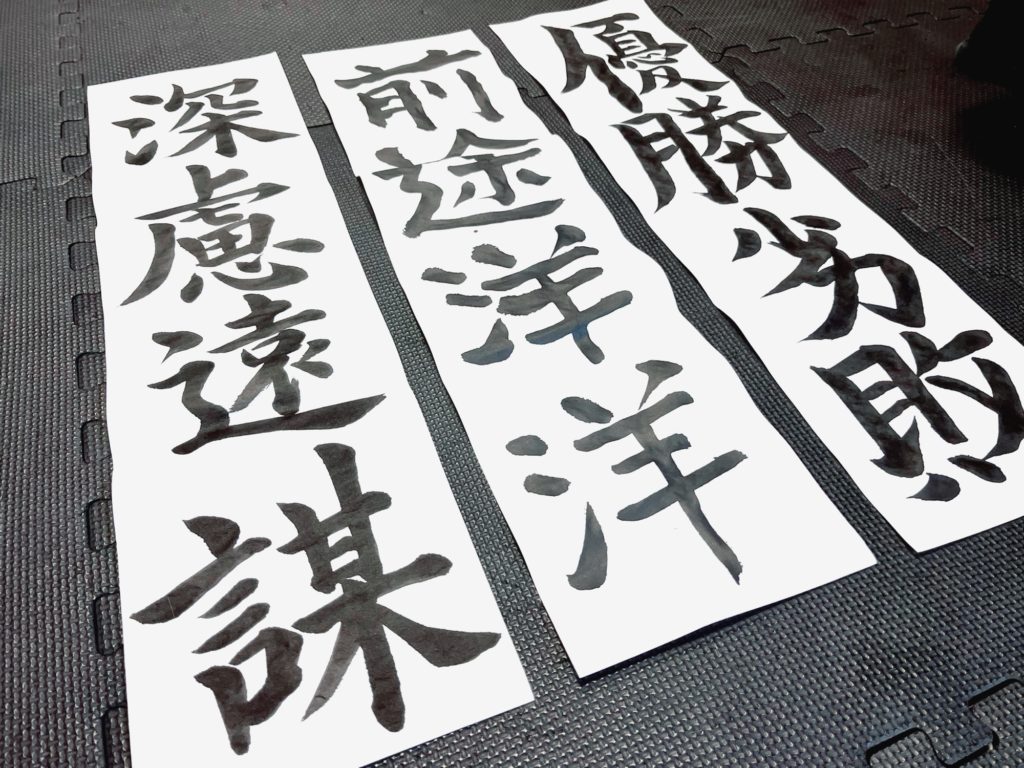 優勝劣敗
前途洋洋
深慮遠謀